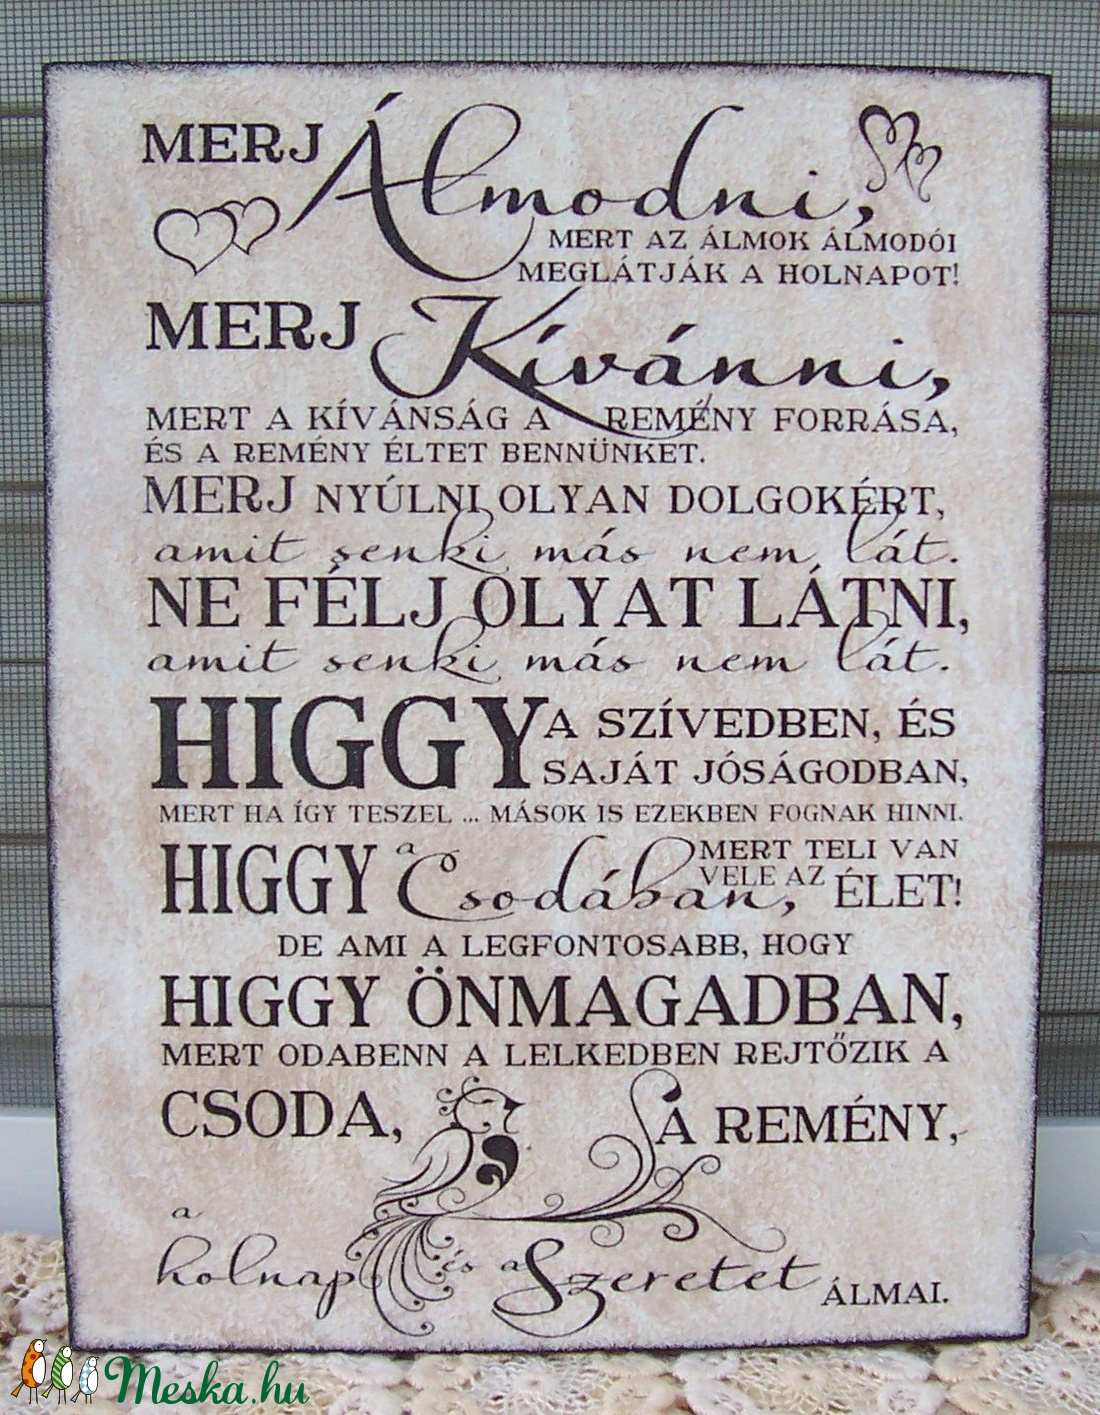 MERJ Álmodni,
MERT AZ ÁLMOK ÁLMODÓI
MEGLÁTJÁK A HOLNAPOT!
MERJ Kívánni,
MERT A KÍVÁNSÁG A REMÉNY FORRÁSA,
ÉS A REMÉNY ÉLTET BENNÜNKET.
MERJ NYÚLNI OLYAN DOLGOKÉRT,
amit senki más nem lát.
NE FÉLJ OLYAT LÁTNI,
amit senki más nem lát.
HIGGY A SZÍVEDBEN, ÉS
SAJÁT JÓSÁGODBAN,
MERT HA ÍGY TESZEL ... MÁSOK IS EZEKBEN FOGNAK HINNI.
HIGGY a Csodában, MERT TELI VAN
VELE AZ ÉLET!
DE AMI A LEGFONTOSABB, HOGY
HIGGY ÖNMAGADBAN,
MERT ODABENN A LELKEDBEN REJTŐZIK A
CSODA, A REMÉNY,
a
holnap és a Szeretet ÁLMAI.
Meska.hu